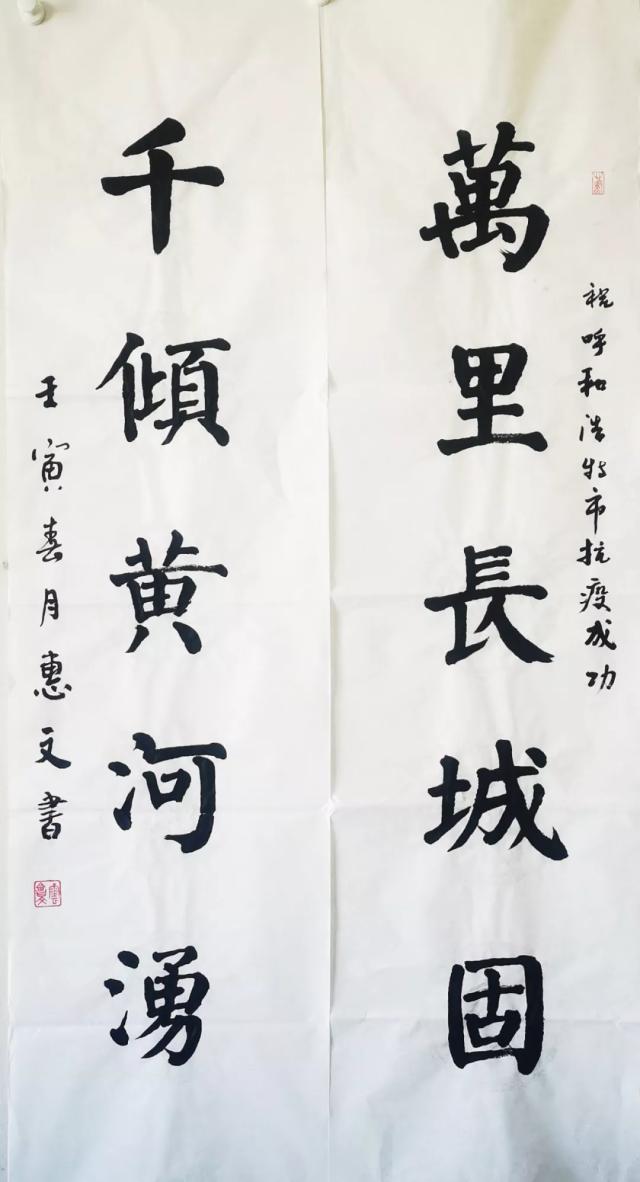 祝呼和浩特市抗疫成功
萬里長城固
千傾黄河湧
壬寅春月惠文書